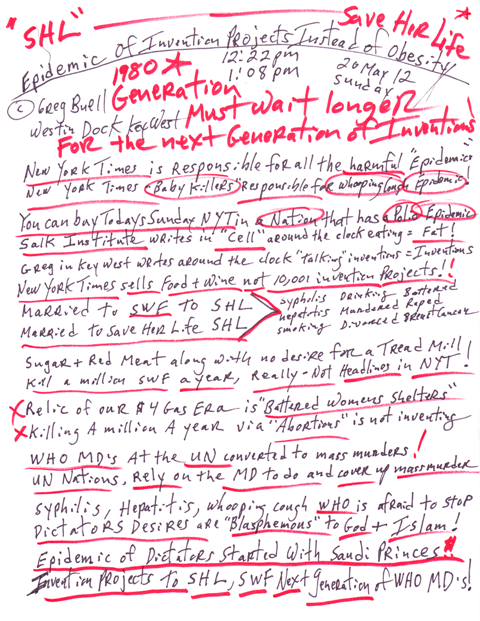 "SHL" Save Her Life *
Epidemic of Invention Projects Instead of Obesity
1980 * 12:22pm
Generation 1:08pm 20 May 12
Sunday
© Greg Buell
Westin Dock Key West Must wait longer!
For the next Generation of Inventions!
New York Times is Responsible for all the harmful "Epidemics"
New York Times - Baby Killers Responsible for whooping cough Epidemic!
You can buy Todays Sunday NYT in a Nation that has a Polio Epidemic
Salk Institute writes in "Cell" around the clock eating = Fat!
Greg in Key West writes around the clock "talking" inventions = Inventions
New York Times sells Food + Wine not 10,001 invention Projects!!
Married to SWF to SHL
Married to Save Her Life SHL
syphilis Drinking Battered
hepatitis Murdered Raped
smoking Divorced Breast Cancer
Sugar + Red Meat along with no desire for a Tread Mill!
Kill a million SWF a year, Really - Not Headlines in NYT!
X Relic of our $4 Gas Era is "Battered Womens Shelters"
X Killing A million A year via "Abortions" is not inventing
WHO MD's At the UN converted to mass murders!
UN Nations, Rely on the MD to do and cover up mass murder
Syphilis, Hepatitis, whooping cough WHO is afraid to stop
Dictators Desires are "Blasphemous" to God + Islam!
Epidemic of Dictators Started with Saudi Princes!
Invention Projects to SHL, SWF Next generation of WHO MD's!